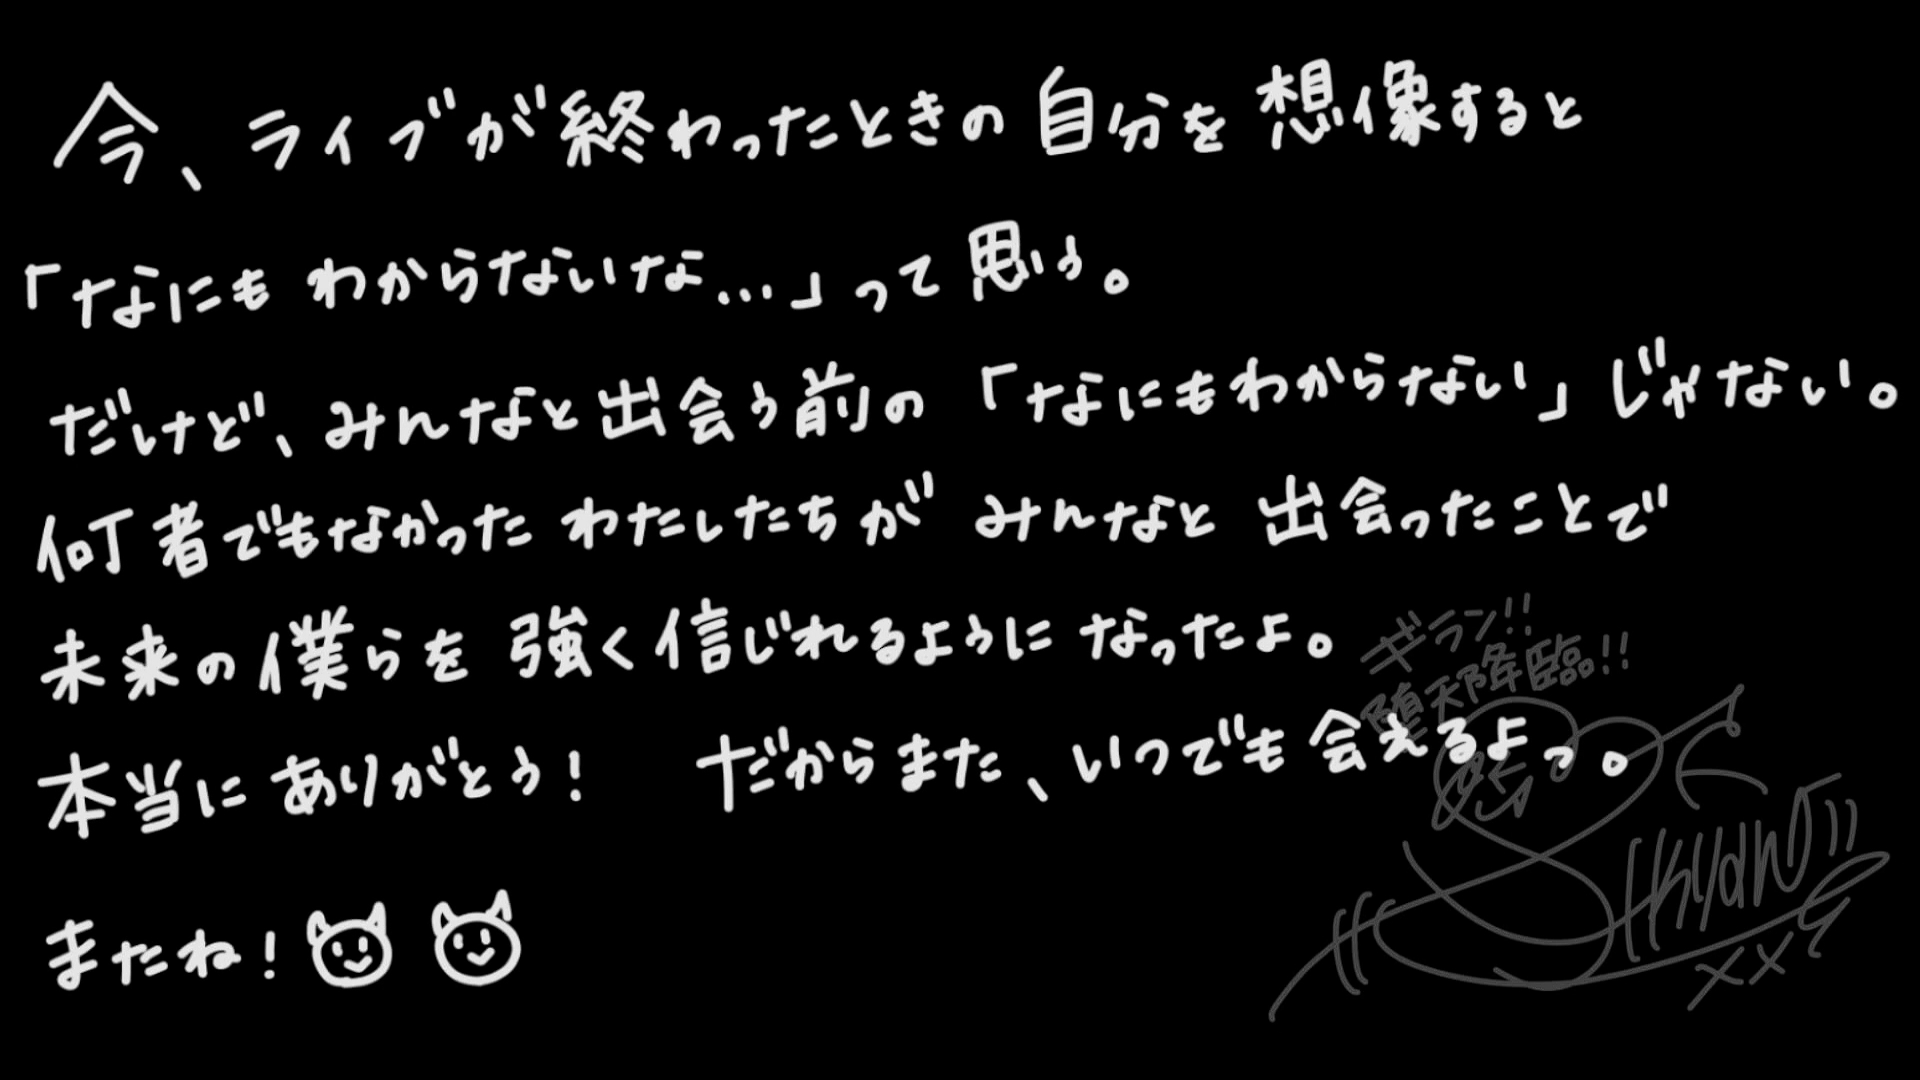 今、ライブが終わったときの自分を想像すると
「なにもわからないな…」って思う。
だけど、みんなと出会う前の「なにもわからない」じゃない。
何者でもなかったわたしたちがみんなと出会ったことで
未来の僕らを強く信じれるようになったよ。
ギラン!!
堕天降臨!!
本当にありがとう！ だからまた、いつでも会えるよっ。
またね！